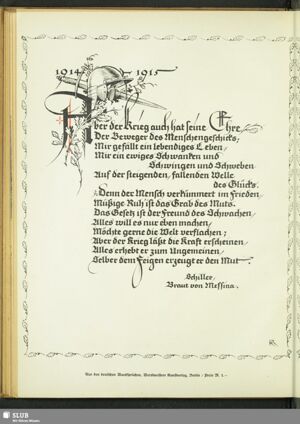 1914 1915
Aber der Krieg auch hat seine Ehre,
Der Beweger des Menschengeschicks,
Mir gefällt ein lebendiges Leben,
Mir ein ewiges Schwanken und
Schwingen und Schweben
Auf der steigenden, fallenden Welle
des Glücks.
Denn der Mensch verkümmert im Frieden
Müßige Ruh ist das Grab des Muts.
Das Gesetz ist der Freund des Schwachen,
Alles will es nur eben machen,
Möchte gerne die Welt verflachen;
Aber der Krieg läßt die Kraft erscheinen
Alles erhebt er zum Ungemeinen,
Selber dem Feigen erzeugt er den Mut.
Schiller,
Braut von Messina.
Aus den deutschen Wandsprüchen, Werkmeisters Kunstverlag, Berlin / Preis M. 1.–
SLUB
Wir führen Wissen.